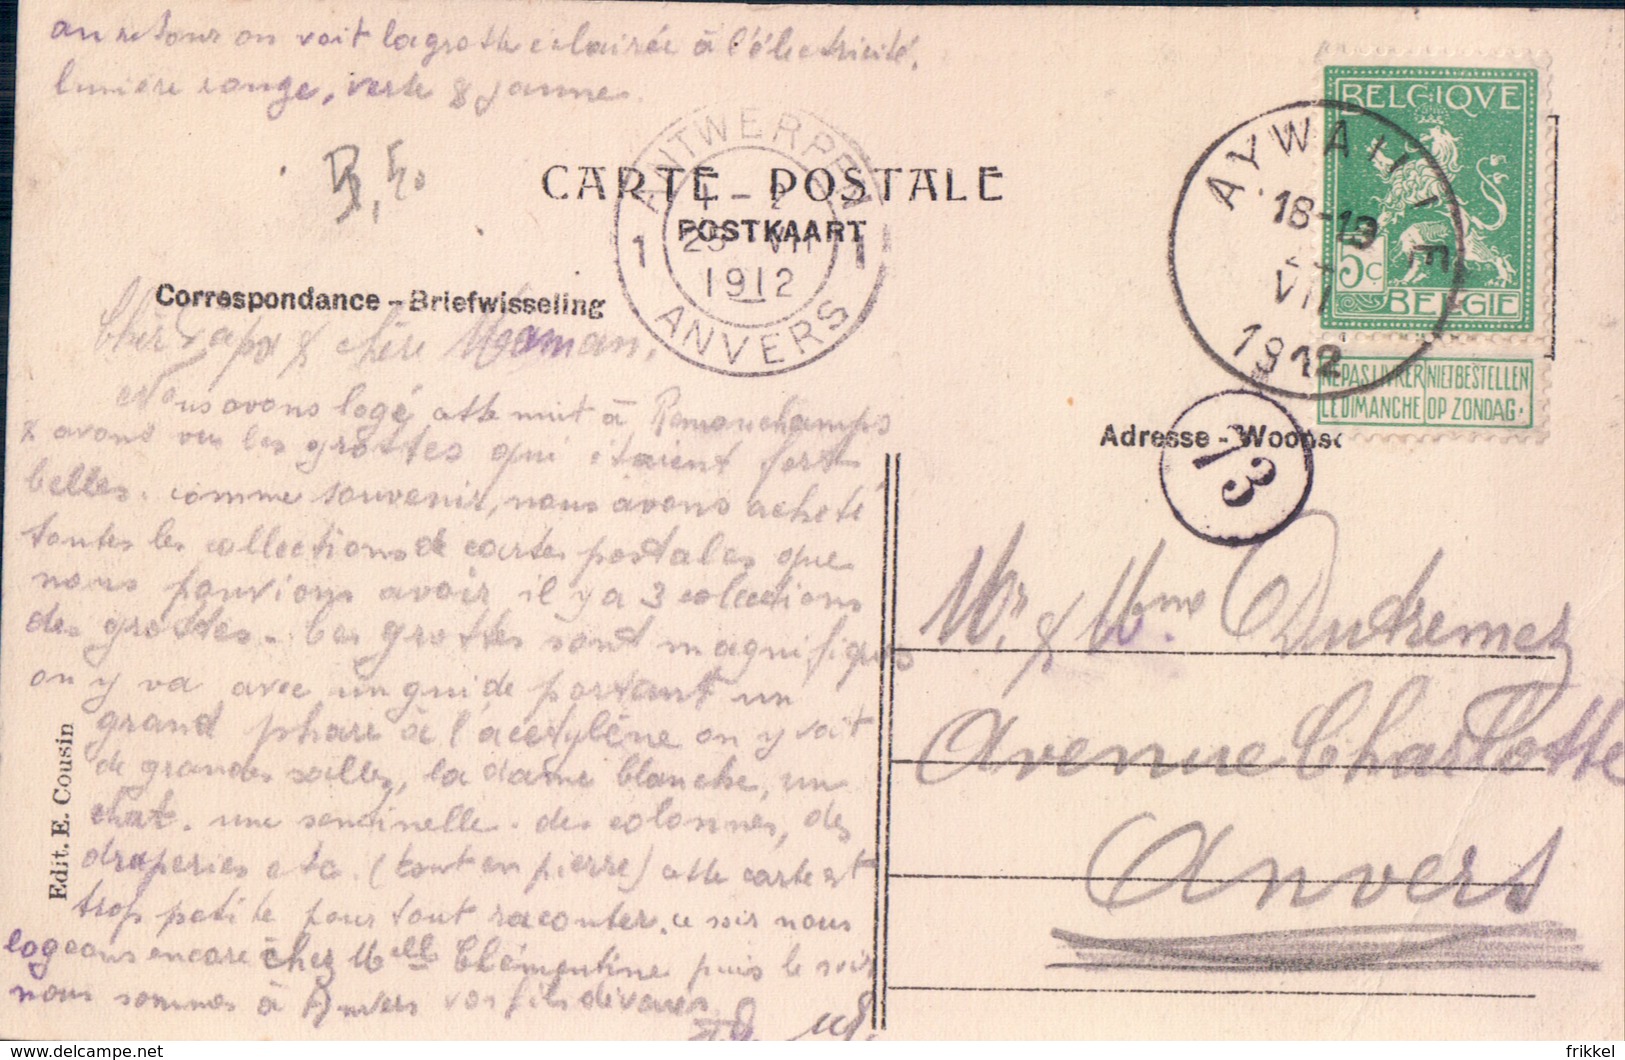 au retour on voit la grotte éclairée à l'électricité.
lumière rouge, verte & jaune.
BELGIQVE
5c
BELGIË
NE PAS LIVRER LE DIMANCHE
NIET BESTELLEN OP ZONDAG.
AYWAILLE
18-19
VII
1912
ANTWERPEN
1 1
VII
1912
ANVERS
CARTE POSTALE
POSTKAART
Correspondance - Briefwisseling
Adresse - Woonst
73
Cher Papa & chère Maman,
Nous avons logé cette nuit à Remouchamps
& avons vu les grottes qui étaient fort
belles. comme souvenir, nous avons acheté
toutes les collections de cartes postales que
nous pouvions avoir il y a 3 collections
des grottes. Ces grottes sont magnifiques
on y va avec un guide portant un
grand phare à l'acétylène on y voit
de grandes salles, la dame blanche, un
chat. une sentinelle. des colonnes, des
draperies etc. (tout en pierre) cette carte est
trop petite pour tout raconter. ce soir nous
logeons encore chez Melle Clémentine puis le soir
nous sommes à Anvers vos fils dévoués
Mr. & Mme Dutremez
Avenue Charlotte
Anvers
Edit. E. Cousin
frikkel